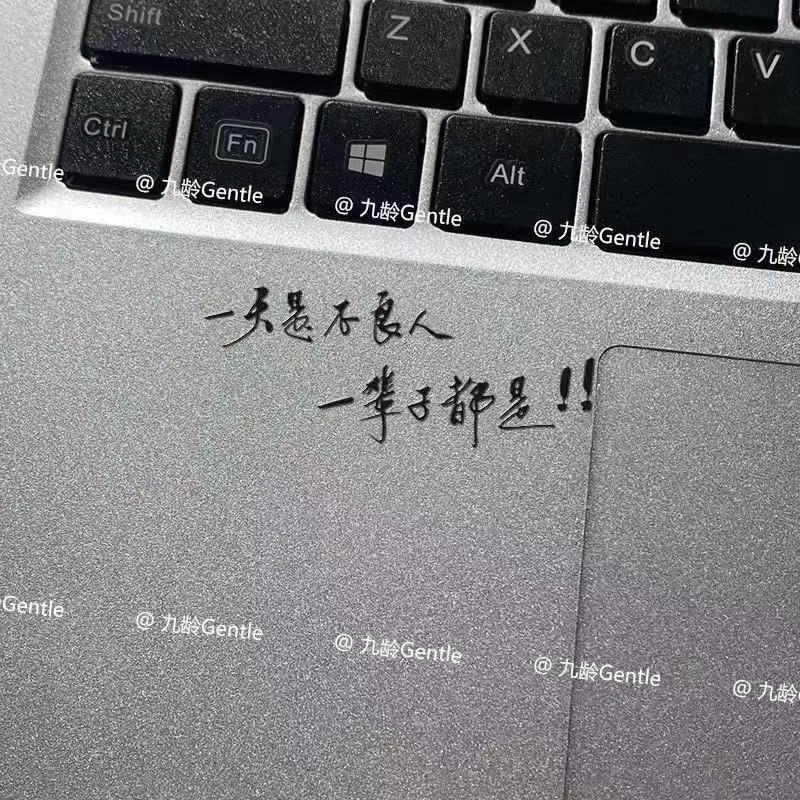 Shift Z X C V
Ctrl Fn Alt
@ 九龄Gentle @ 九龄Gentle @ 九龄Gentle @ 九龄Gentle @ 九龄
一天是不良人
一辈子都是!!
@ 九龄Gentle @ 九龄Gentle @ 九龄Gentle @ 九龄Gentle @ 九龄